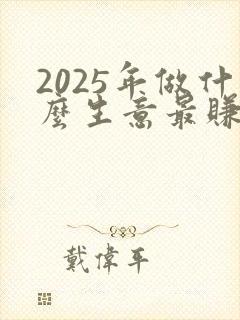 2025年做什
麼生意最賺
戴偉平